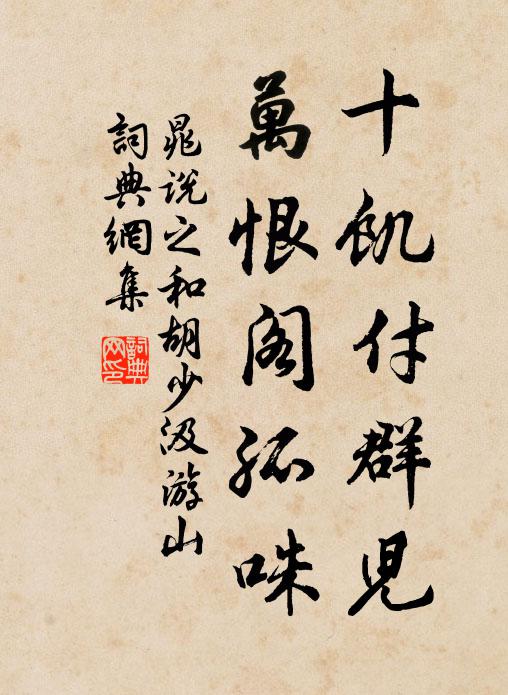 十飢付群兒
萬恨閣孤咮
晁說之和胡少汲游山
詞典網集
詞典
网印